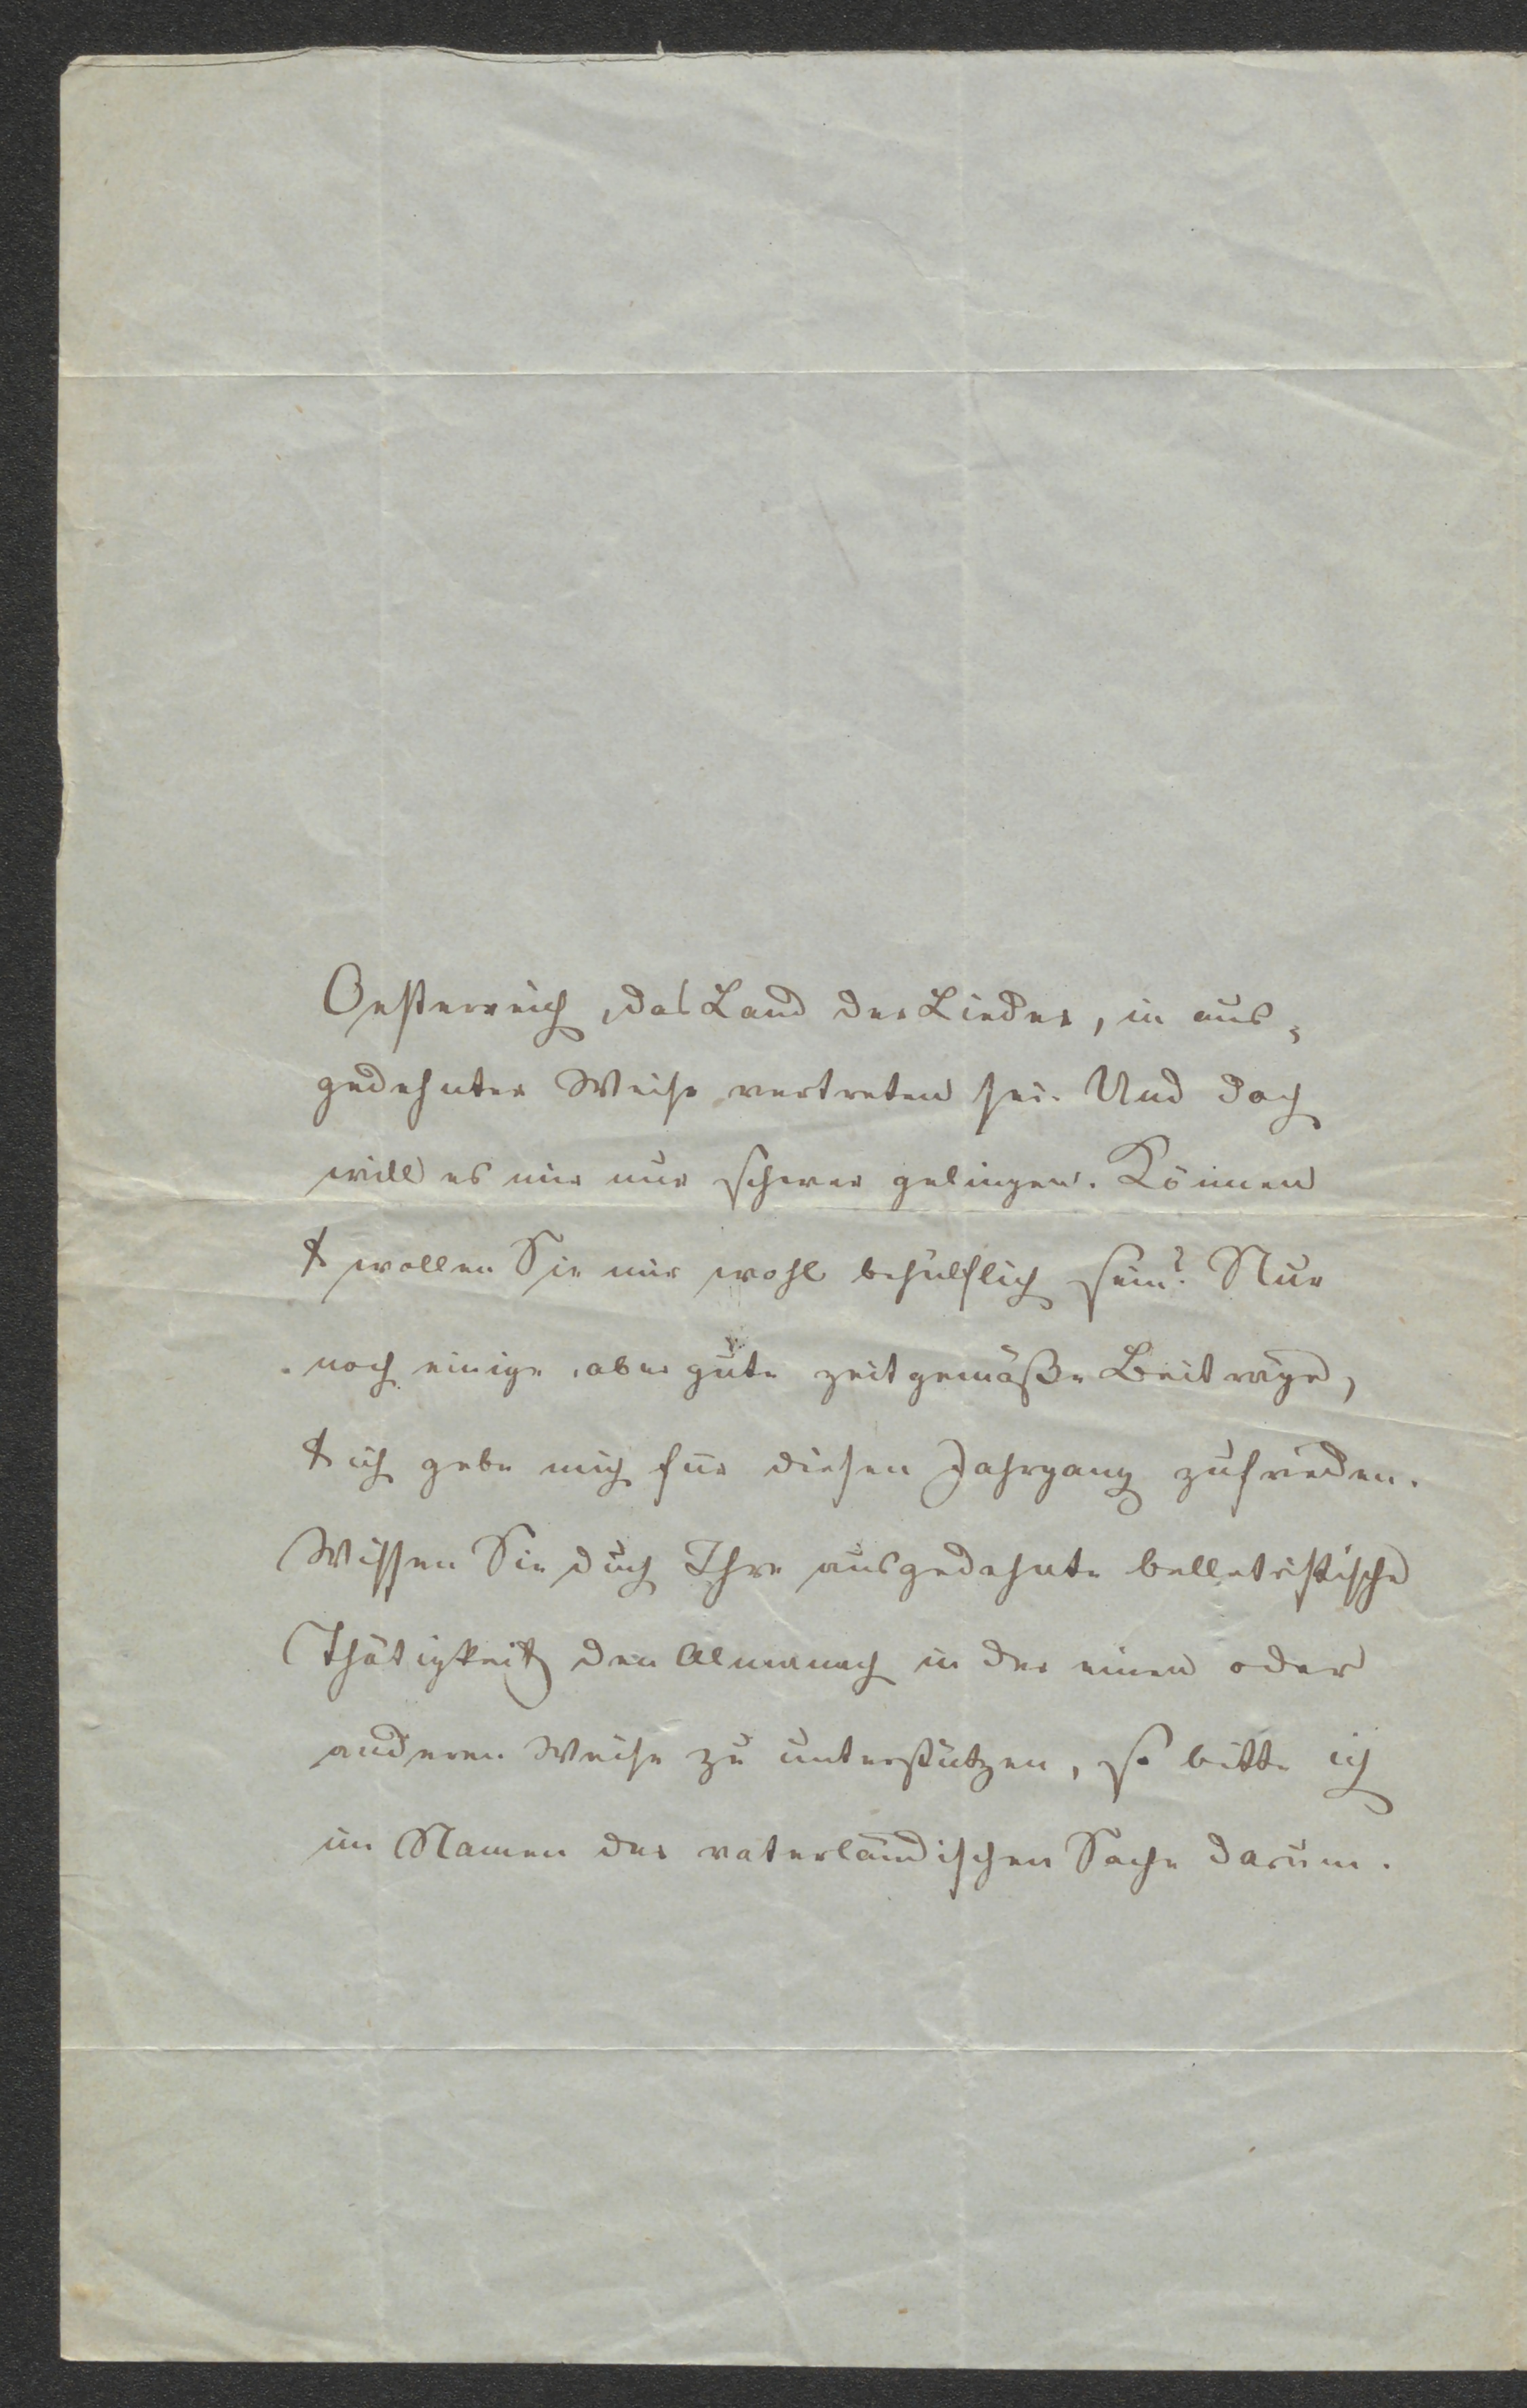 Oesterreich, das Land der Lieder, in aus-
gedehnter Weise vertreten sei. Und doch
will es mir nur schwer gelingen. Können
& wollen Sie mir wohl behülflich sein? Nur
noch einige, aber gute zeitgemäße Beiträge,
& ich gebe mich für diesen Jahrgang zufrieden.
Wissen Sie duch Ihre ausgedehnte belletristische
Thätigkeit den Almanach in der einen oder
anderen Weise zu unterstützen, so bitte ich
im Namen der vaterländischen Sache darum.